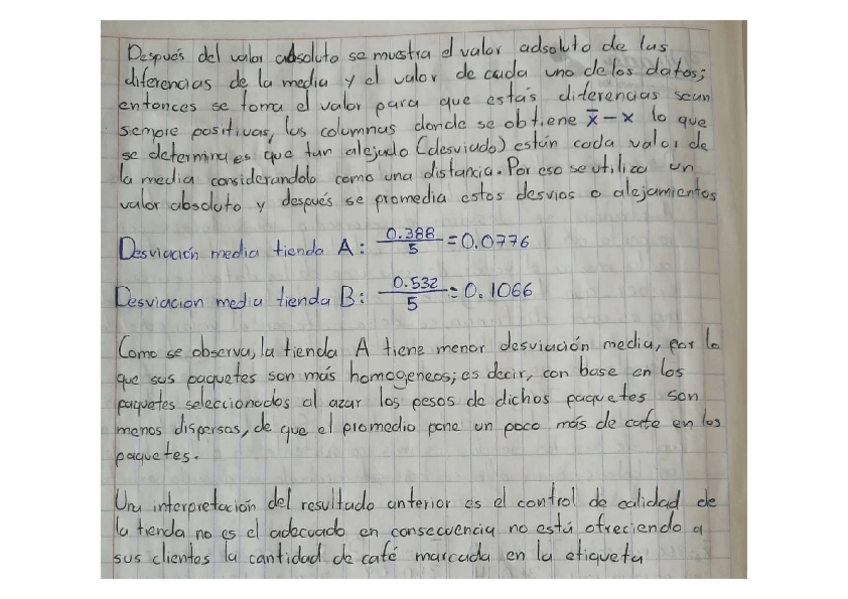 Después del valor absoluto se muestra el valor adsoluto de las
diferencias de la media y el valor de cada uno de los datos;
entonces se toma el valor para que estás diferencias sean
sempre positivas, las columnas donde se obtiene x̄ - x lo que
se determina es que tan alejado (desviado) están cada valor de
la media considerandolo como una distancia. Por eso se utiliza un
valor absoluto y después se promedia estos desvios o alejamientos
Desviación media tienda A: 0.388/5 = 0.0776
Desviacion media tienda B: 0.532/5 = 0.1066
Como se observa, la tienda A tiene menor desviación media, por lo
que sus paquetes son más homogeneos; es decir, con base en los
paquetes seleccionados al azar los pesos de dichos paquetes son
menos dispersas, de que el promedio pone un poco más de cafe en los
paquetes.
Una interpretación del resultado anterior es el control de calidad de
la tienda no es el adecuado en consecuencia no está ofreciendo a
sus clientes la cantidad de café marcada en la etiqueta